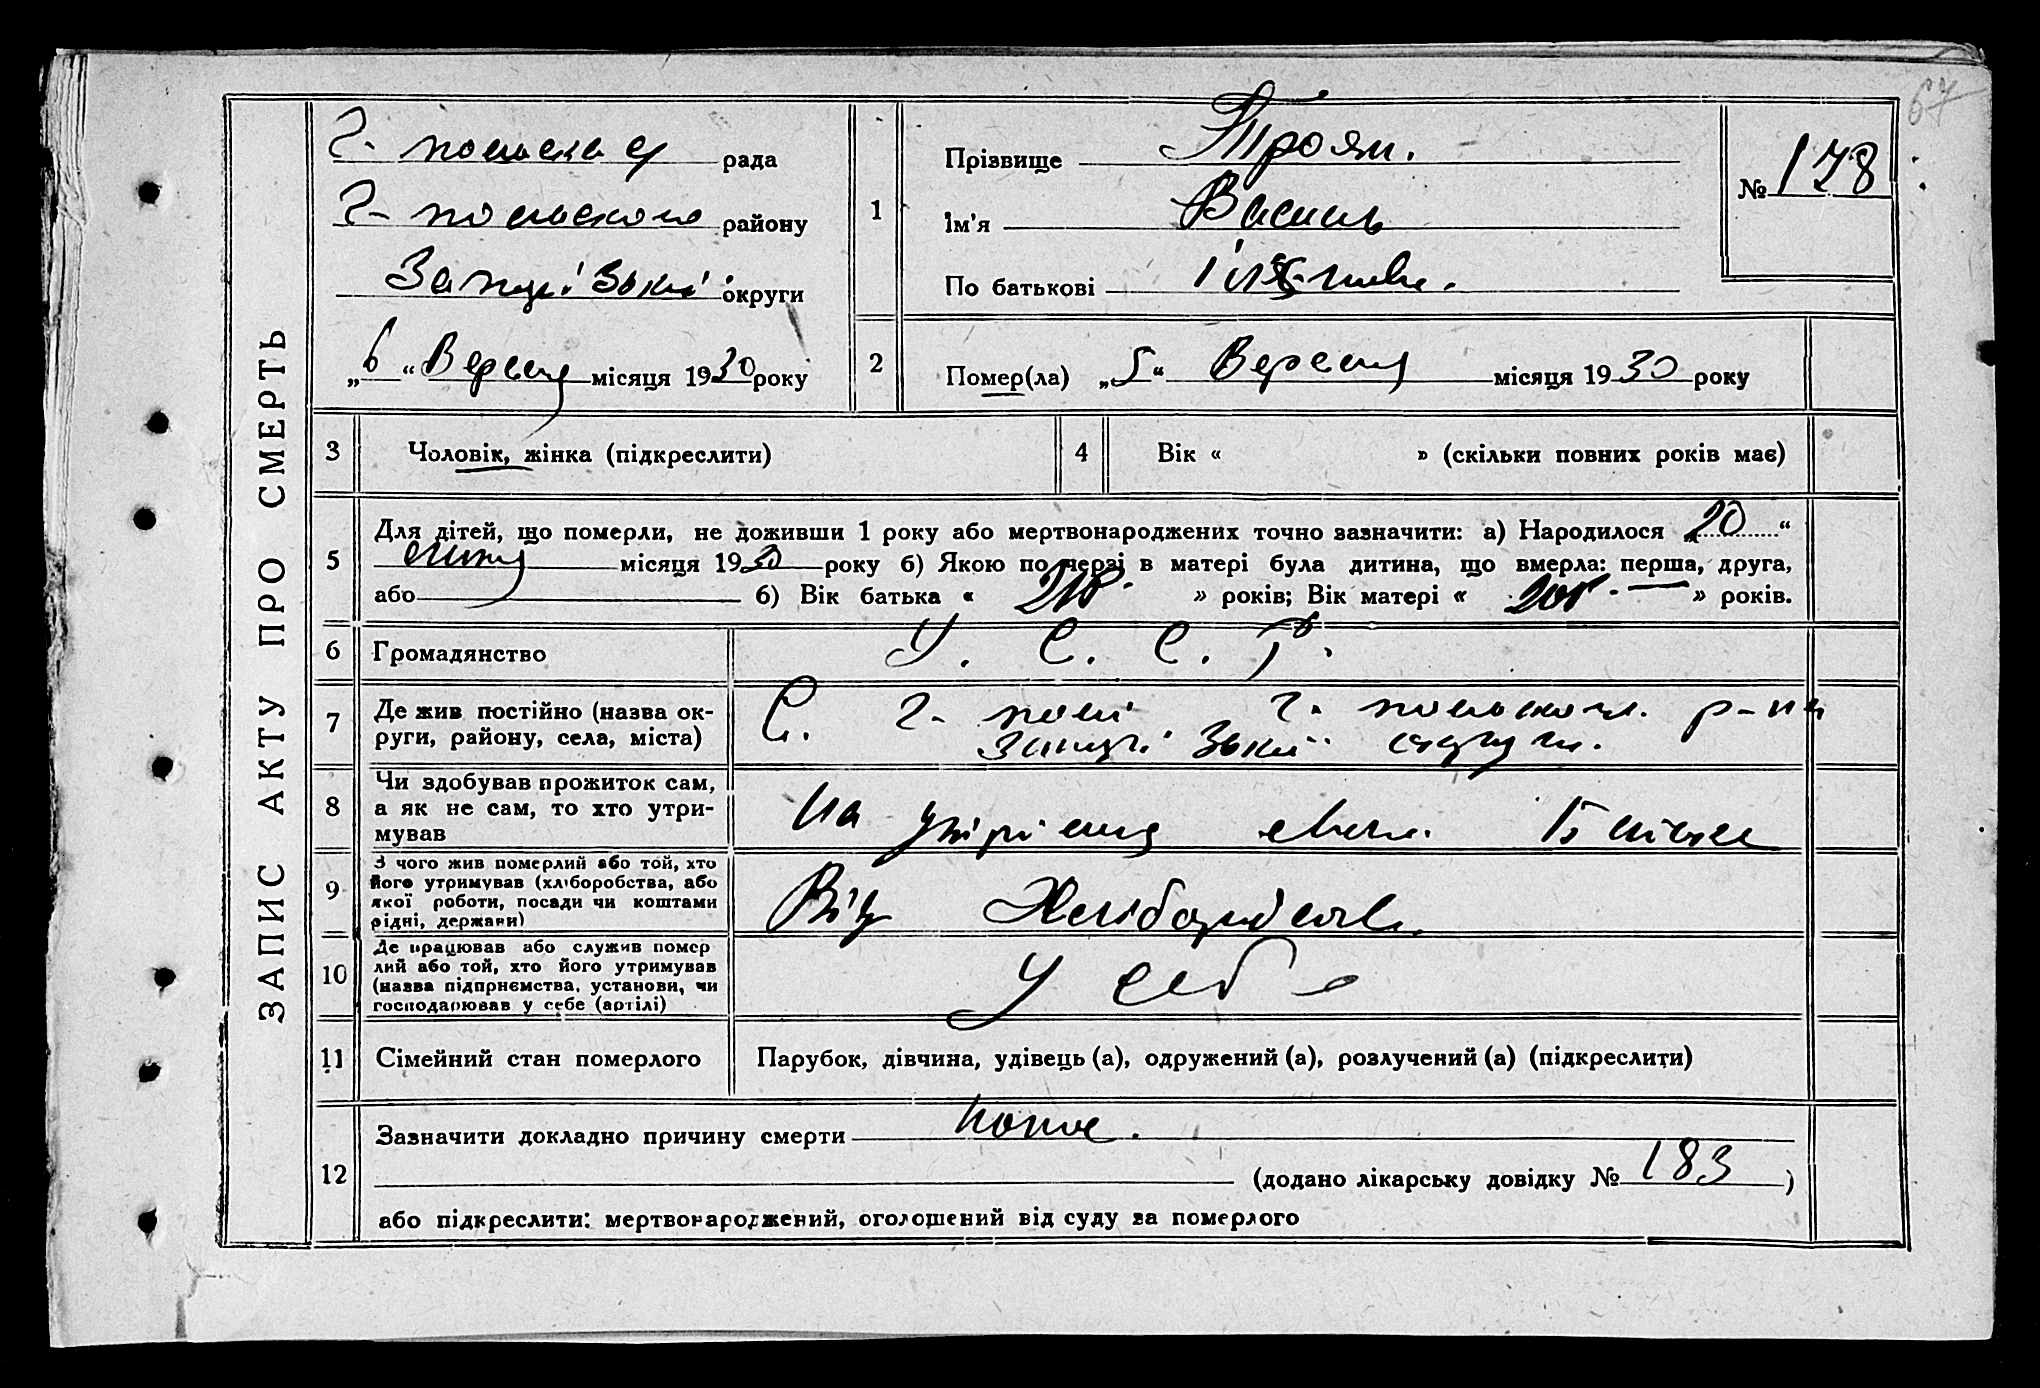 67
ЗАПИС АКТУ ПРО СМЕРТЬ
Г- польська рада
Г- польського району
Запорізької округи
„6“ Вересня місяця 1930 року
1
Прізвище Троян.
Ім'я Василь
По батькові
№ 178
2
Помер(ла) „5“ Вересня місяця 1930 року
3
Чоловік, жінка (підкреслити)
4
Вік « » (скільки повних років має)
5
Для дітей, що померли, не доживши 1 року або мертвонароджених точно зазначити: а) Народилося „20“
липня місяця 1930 року б) Якою по черзі в матері була дитина, що вмерла: перша, друга,
або б) Вік батька « » років; Вік матері « » років.
6
Громадянство
У. С. С. Р.
7
Де жив постійно (назва ок-
руги, району, села, міста)
С. Г- полі Г. польського р-ну
Запорізької округи.
8
Чи здобував прожиток сам,
а як не сам, то хто утри-
мував
На утриманні свого Батька
9
З чого жив померлий або той, хто
його утримував (хліборобства, або
якої роботи, посади чи коштами
рідні, держави)
Від Хліборобства.
10
Де працював або служив помер
лий або той, хто його утримував
(назва підприємства, установи, чи
господарював у себе (артілі)
У себе
11
Сімейний стан померлого
Парубок, дівчина, удівець (а), одружений (а), розлучений (а) (підкреслити)
12
Зазначити докладно причину смерти
(додано лікарську довідку № 183 )
або підкреслити: мертвонароджений, оголошений від суду за померлого